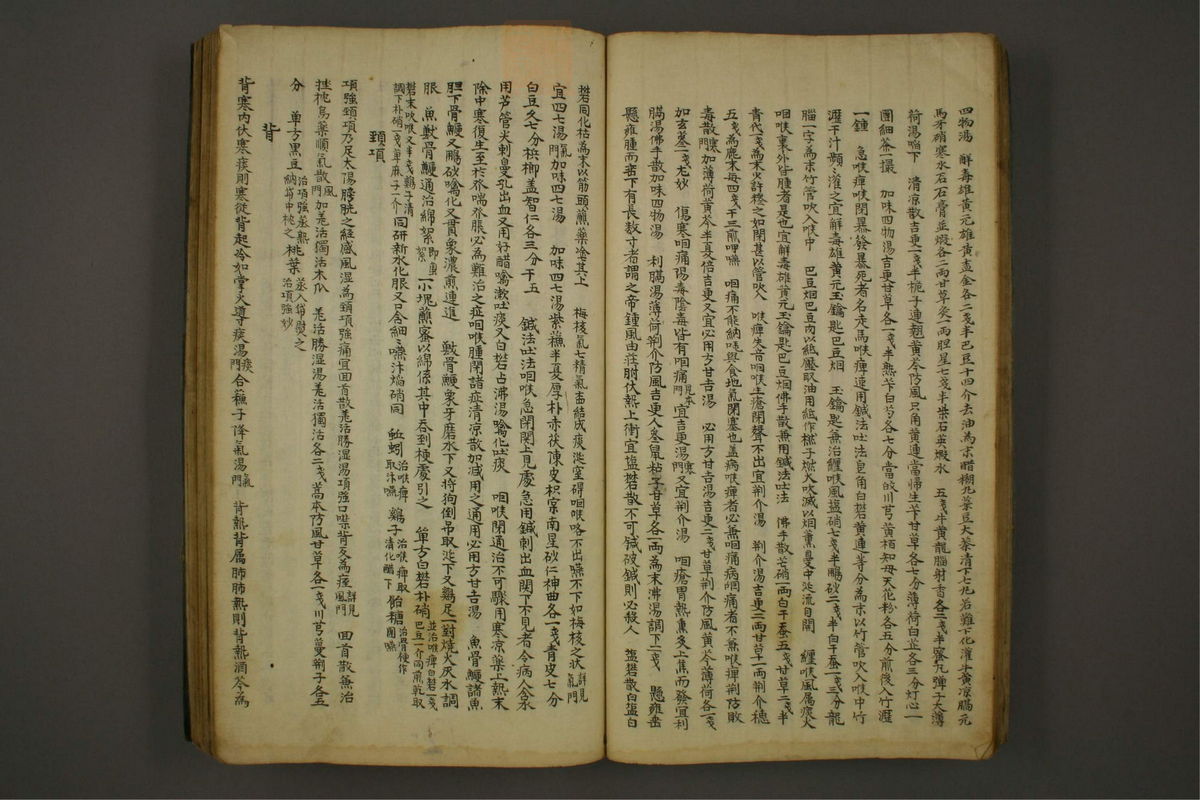 四物湯 解毒雄黃元雄黃盃金各二戔半巴豆十四介去油為末醋糊丸菉豆大茶清下七丸若難下化灌牛黃凉膈元
馬牙硝寒水石石膏並煆各二両甘草炙一両胆星七戔半紫石英煆水 五戔牛黃龍腦射香各二戔半蜜丸彈子大薄
荷湯嚼下 清凉散吉更一戔半梔子連翹黃芩防風只角黃連當帰生芐甘草各七分薄荷白芷各三分灯心一
團細茶一撮 加味四物湯吉更甘草各一戔半熟芐白芍各七分當歸川芎黃栢知母天花粉各五分煎後入竹瀝
一鍾 急喉痺喉閉暴發暴死者名走馬喉痺速用鍼法吐法皂角白礬黃連等分為末以竹管吹入喉中竹
瀝干汁頻頻灌之宜解毒雄黃元玉鑰匙巴豆烟 玉鑰匙無治纏喉風塩硝七戔半鵬砂二戔半白干蚕一戔三分龍
腦一字為末竹管吹入喉中 巴豆烟巴豆肉以紙壓取油用紙作撚子燃火吹滅以烟熏鼻中涎流自開 纏喉風属痰火
咽喉裏外皆腫者是也宜解毒雄黃元玉鑰匙巴豆烟佛手散兼用鍼法吐法 佛手散芒硝一両白干蚕五戔甘草二戔半
青代一戔為末火許摻之如閉甚以管吹入 喉痺失音咽喉生瘡閉聲不出宜荊介湯 荊介湯吉更二両甘草一両荊介穗
五戔為麁末每四戔干三煎呷嚥 咽痛不能納唾與食地氣閉塞也盖病喉痺者必兼咽痛病咽痛者不兼喉痺荊防敗
毒散寒門加薄荷黃芩半夏倍吉更又宜必用方甘吉湯 必用方甘吉湯吉更二戔甘草荊介防風黃芩薄荷各一戔
加玄蔘一戔尤妙 傷寒咽痛陽毒陰毒皆有咽痛見本門宜吉更湯寒門又宜荊介湯 咽瘡胃熱熏炙上焦而發宜利
膈湯佛手散加味四物湯 利膈湯薄荷荊介防風吉更人蔘鼠粘子甘草各一両為末沸湯調下二戔 懸雍垂
懸雍腫而垂下有長数寸者謂之帝鍾風由莊肘伏熱上衝宜塩礬散不可鍼破鍼則必殺人 塩礬散白塩白
礬同化枯為末以筋頭蘸藥点其上 梅核氣七精氣盃結成痰涎室碍咽喉咯不出嚥不下如梅核之状詳見氣門
宜四七湯氣門加味四七湯 加味四七湯紫蘓半夏厚朴赤茯陳皮枳实南星砂仁神曲各一戔青皮七分
白豆久七分梹榔盖智仁各三分干五 鍼法吐法咽喉急閉関上見處急用鍼刺出血関下不見者令病人含水
用芦管尖刺皇孔出血又用好醋噙漱吐痰又白礬占沸湯噙化吐痰 咽喉閉通治不可驟用寒凉藥上熱未
除中寒復生至於喘脹必為難治之症咽喉腫閉諸症清凉散加减用之通用必用方甘吉湯 魚骨鯁諸魚
胆下骨鯁又鵬砂噙化又貫象濃煎連進 獸骨鯁象牙磨水下又將狗倒吊取涎下又鷄足一對燒火灰水調
服 魚獸骨鯁通治綿絮即重絮一小塊煎蜜以綿係其中吞到梗處引之 單方白礬朴硝並治喉痺白礬一戔巴豆一介同煎乾取
礬末吹喉又半戔鷄子清調下朴硝一戔草麻子一介同研新水化服又只含細細嚥汁焰硝同 蚯蚓治喉痺取汁嚥 鷄子治喉痺取清化醋下 飴糖治骨梗作團嚥
頸項
項強頸項乃足太陽膀胱之経感風湿為頸項強痛宜回首散羗活勝湿湯項強口噤背反為痙詳見風門 回首散無治
挫枕烏藥順氣散風門加羗活獨活木瓜 羗活勝湿湯羗活獨活各二戔藁本防風甘草各一戔川芎蔓荊子各五
分 單方黑豆治項強蒸熟納帒中枕之 桃葉蒸入帒熨之治項強妙
背
背寒内伏寒痰則寒從背起冷如掌大導痰湯痰門合蘓子降氣湯氣門 背熱背属肺肺熱則背熱酒芩為